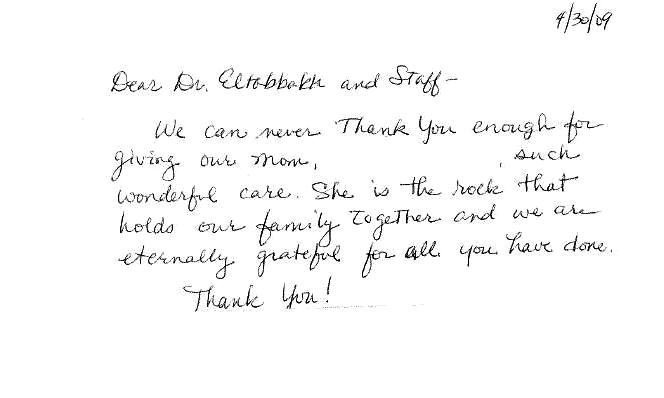 4/30/09
Dear Dr. Eltabbakh and Staff-
We can never Thank You enough for
giving our mom, , such
wonderful care. She is the rock that
holds our family Together and we are
eternally grateful for all you have done.
Thank You!